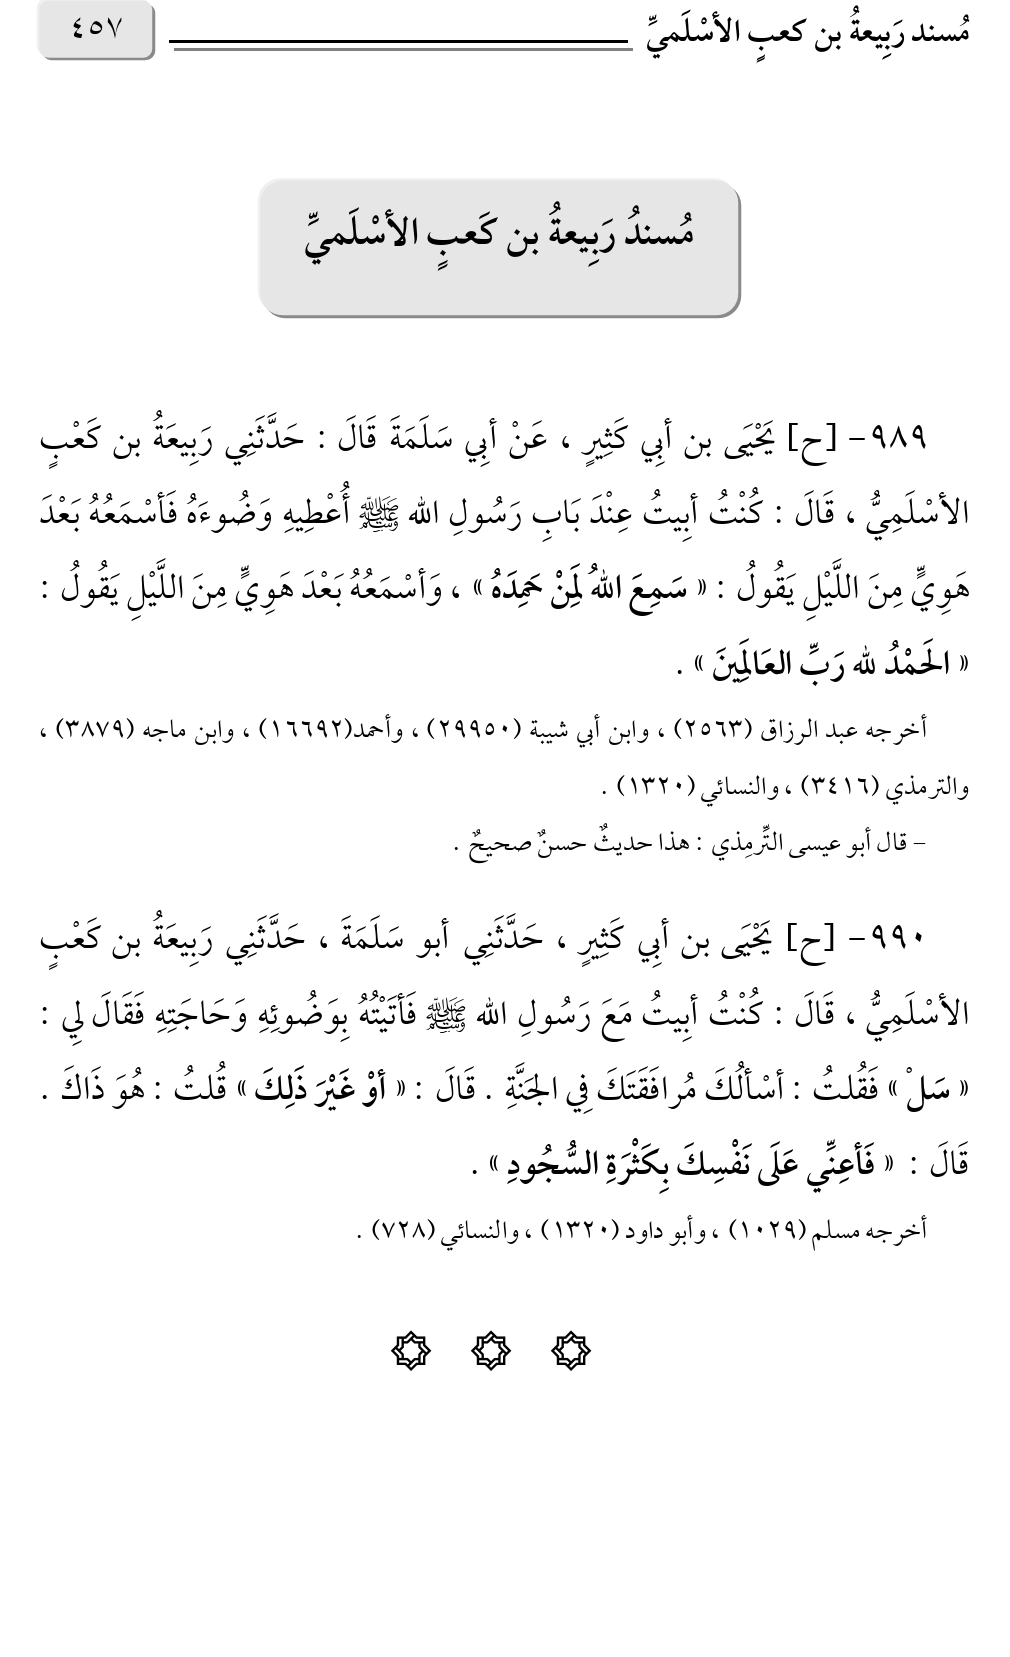 مُسند رَبِيعةُ بن كعبٍ الأسْلَميِّ
٤٥٧
مُسندُ رَبِيعةُ بن كَعبٍ الأسْلَميِّ
٩٨٩- [ح] يَحْيَى بن أبِي كَثِيرٍ ، عَنْ أبِي سَلَمَةَ قَالَ : حَدَّثَنِي رَبِيعَةُ بن كَعْبٍ
الأسْلَمِيُّ ، قَالَ : كُنْتُ أبِيتُ عِنْدَ بَابِ رَسُولِ الله ﷺ أُعْطِيهِ وَضُوءَهُ فَأسْمَعُهُ بَعْدَ
هَوِيٍّ مِنَ اللَّيْلِ يَقُولُ : « سَمِعَ اللهُ لَمِنْ حَمِدَهُ » ، وَأسْمَعُهُ بَعْدَ هَوِيٍّ مِنَ اللَّيْلِ يَقُولُ :
« الحَمْدُ لله رَبِّ العَالَمِينَ » .
أخرجه عبد الرزاق (٢٥٦٣) ، وابن أبي شيبة (٢٩٩٥٠) ، وأحمد(١٦٦٩٢) ، وابن ماجه (٣٨٧٩) ،
والترمذي (٣٤١٦) ، والنسائي (١٣٢٠) .
- قال أبو عيسى التِّرمِذي : هذا حديثٌ حسنٌ صحيحٌ .
٩٩٠- [ح] يَحْيَى بن أبِي كَثِيرٍ ، حَدَّثَنِي أبو سَلَمَةَ ، حَدَّثَنِي رَبِيعَةُ بن كَعْبٍ
الأسْلَمِيُّ ، قَالَ : كُنْتُ أبِيتُ مَعَ رَسُولِ الله ﷺ فَأتَيْتُهُ بِوَضُوئِهِ وَحَاجَتِهِ فَقَالَ لِي :
« سَلْ » فَقُلتُ : أسْألُكَ مُرافَقَتَكَ فِي الجَنَّةِ . قَالَ : « أوْ غَيْرَ ذَلِكَ » قُلتُ : هُوَ ذَاكَ .
قَالَ : « فَأعِنِّي عَلَى نَفْسِكَ بِكَثْرَةِ السُّجُودِ » .
أخرجه مسلم (١٠٢٩) ، وأبو داود (١٣٢٠) ، والنسائي (٧٢٨) .